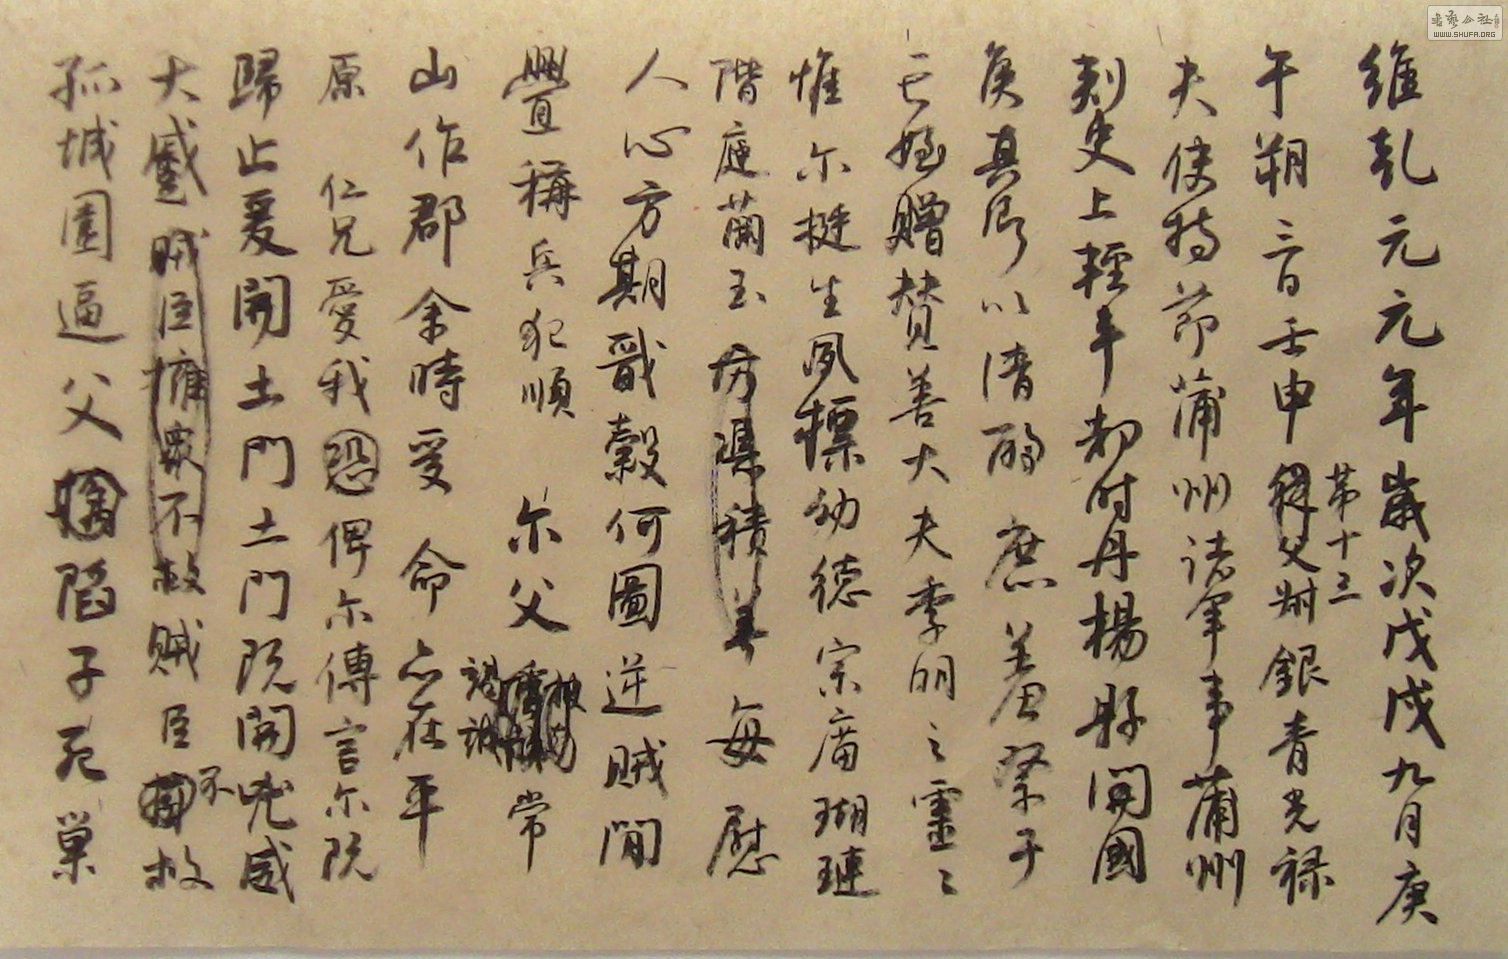 維乾元元年歲次戊戌九月庚
午朔三日壬申第十三從父叔銀青光禄
夫使持節蒲州諸軍事蒲州
刺史上輕車都尉丹楊縣開國
侯真卿以清酌庶羞祭于
亡姪贈賛善大夫季明之靈曰
惟尔挺生夙標幼德宗廟瑚璉
階庭蘭玉方憑積善每慰
人心方期戩穀何圖逆賊閒
舋稱兵犯順尔父竭誠常
山作郡余時受命亦在平
原仁兄愛我恐俾尔傳言尔既
歸止爰開土門土門既開凶威
大蹙賊臣擁衆不救賊臣擁不救
孤城圍逼父擒陷子死巢
書藝公社
WWW.SHUFA.ORG